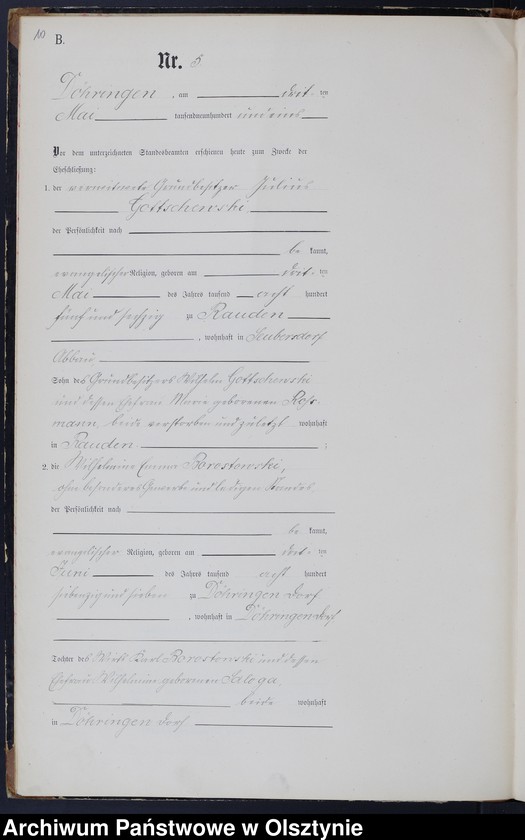 10
B.
Nr. 5
Döhringen, am drit- ten
Mai tausendneunhundert und eins
Vor dem unterzeichneten Standesbeamten erschienen heute zum Zwecke der
Eheschließung:
1. der verwitwete Grundbesitzer Julius
Gottschewski
der Persönlichkeit nach
be kannt,
evangelischer Religion, geboren am drit- ten
Mai des Jahres tausend acht hundert
fünf und sechzig zu Rauden
, wohnhaft in Seubersdorf
Abbau
Sohn des Grundbesitzers Wilhelm Gottschewski
und dessen Ehefrau Marie geborenen Ross-
mann, beide verstorben und zuletzt wohnhaft
in Rauden ;
2. die Wilhelmine Emma Borostowski,
ohne besonderes Gewerbe und ledigen Standes,
der Persönlichkeit nach
be kannt,
evangelischer Religion, geboren am drit- ten
Juni des Jahres tausend acht hundert
siebenzig und sieben zu Döhringen Dorf
, wohnhaft in Döhringen Dorf
Tochter des Wirts Karl Borostowski und dessen
Ehefrau Wilhelmine geborenen Saloga,
beide wohnhaft
in Döhringen Dorf
Archiwum Państwowe w Olsztynie